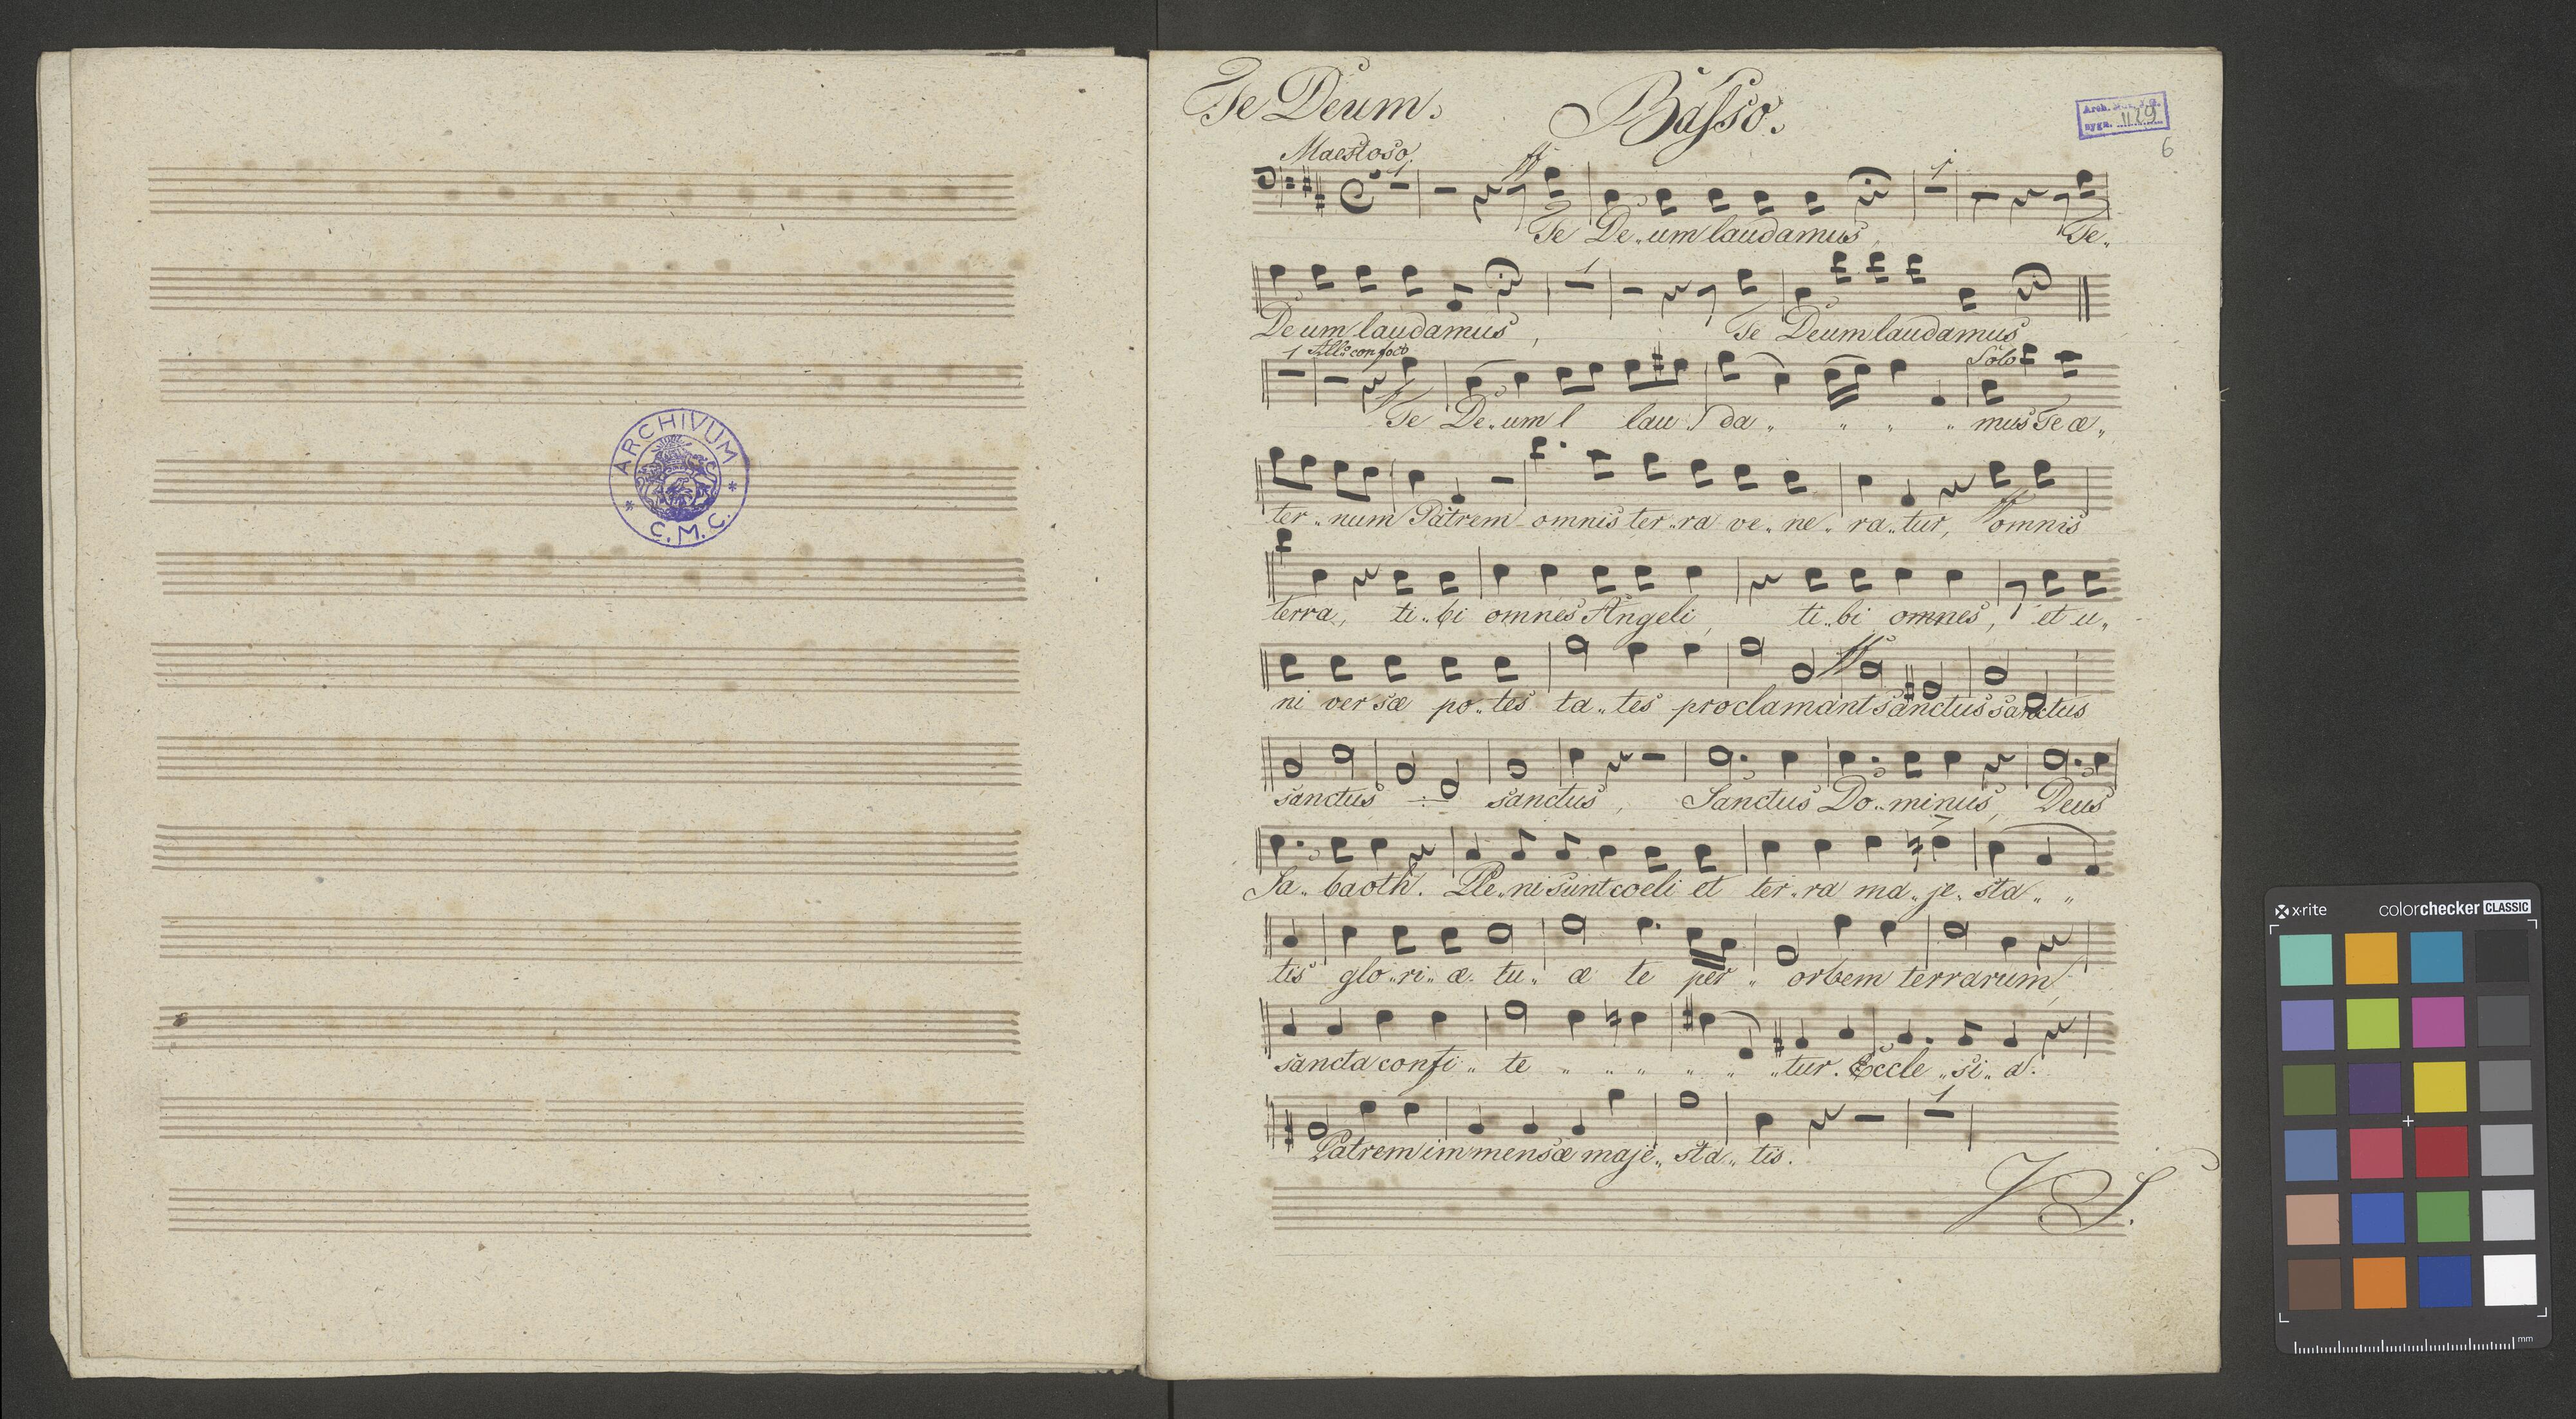 ARCHIVUM
* C.M.C. *
Te Deum.
Basso.
Arch.
sygn. II 29
6
Maestoso.
1 ff 1
Te De„um laudamus, Te„
1
Deum laudamus, Te Deum laudamus
1 All: con foco Solo
Te De„um l lau„ da „ „ „ „ mus Te æ„
ter„num Patrem omnis ter„ra ve„ne„ra„tur, ff omnis
terra, ti„bi omnes Angeli, ti„bi omnes, et u„
ff
ni ver sæ po„tes ta„tes proclamant sanctus sanctus
sanctus ÷ sanctus, Sanctus Do„minus, Deus
Sa„baoth. Ple„ni sunt coeli et ter„ra ma„je„sta „ „
tis glo„ri„æ tu„æ te per „ orbem terrarum,
sancta confi„te „ „ „ „ „ „tur. Eccle„si„a.
1
Patrem immensæ maje„sta„tis.
VS.
x·rite
colorchecker CLASSIC
mm